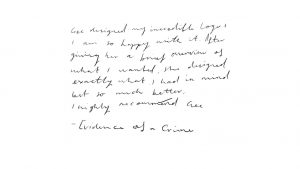 Gee designed my incredible Logo &
I am so happy with it. After
giving her a brief overview of
what I wanted, she designed
exactly what I had in mind
but so much better.
I highly recommend Gee
- Evidence of a Crime